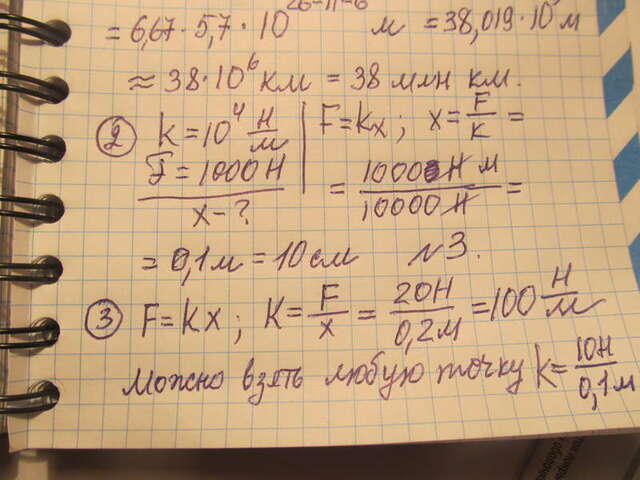 = 6,67 · 5,7 · 10^(26-11-6) м = 38,019 · 10 м
≈ 38 · 10⁶ км = 38 млн км.
② k = 10⁴ Н/м | F = kx ; x = F/k =
F = 1000 Н
x - ? = 1000 Н м / 10000 Н =
= 0,1 м = 10 см №3.
③ F = kx ; K = F/x = 20Н/0,2м = 100 Н/м
Можно взять любую точку k = 10Н/0,1м